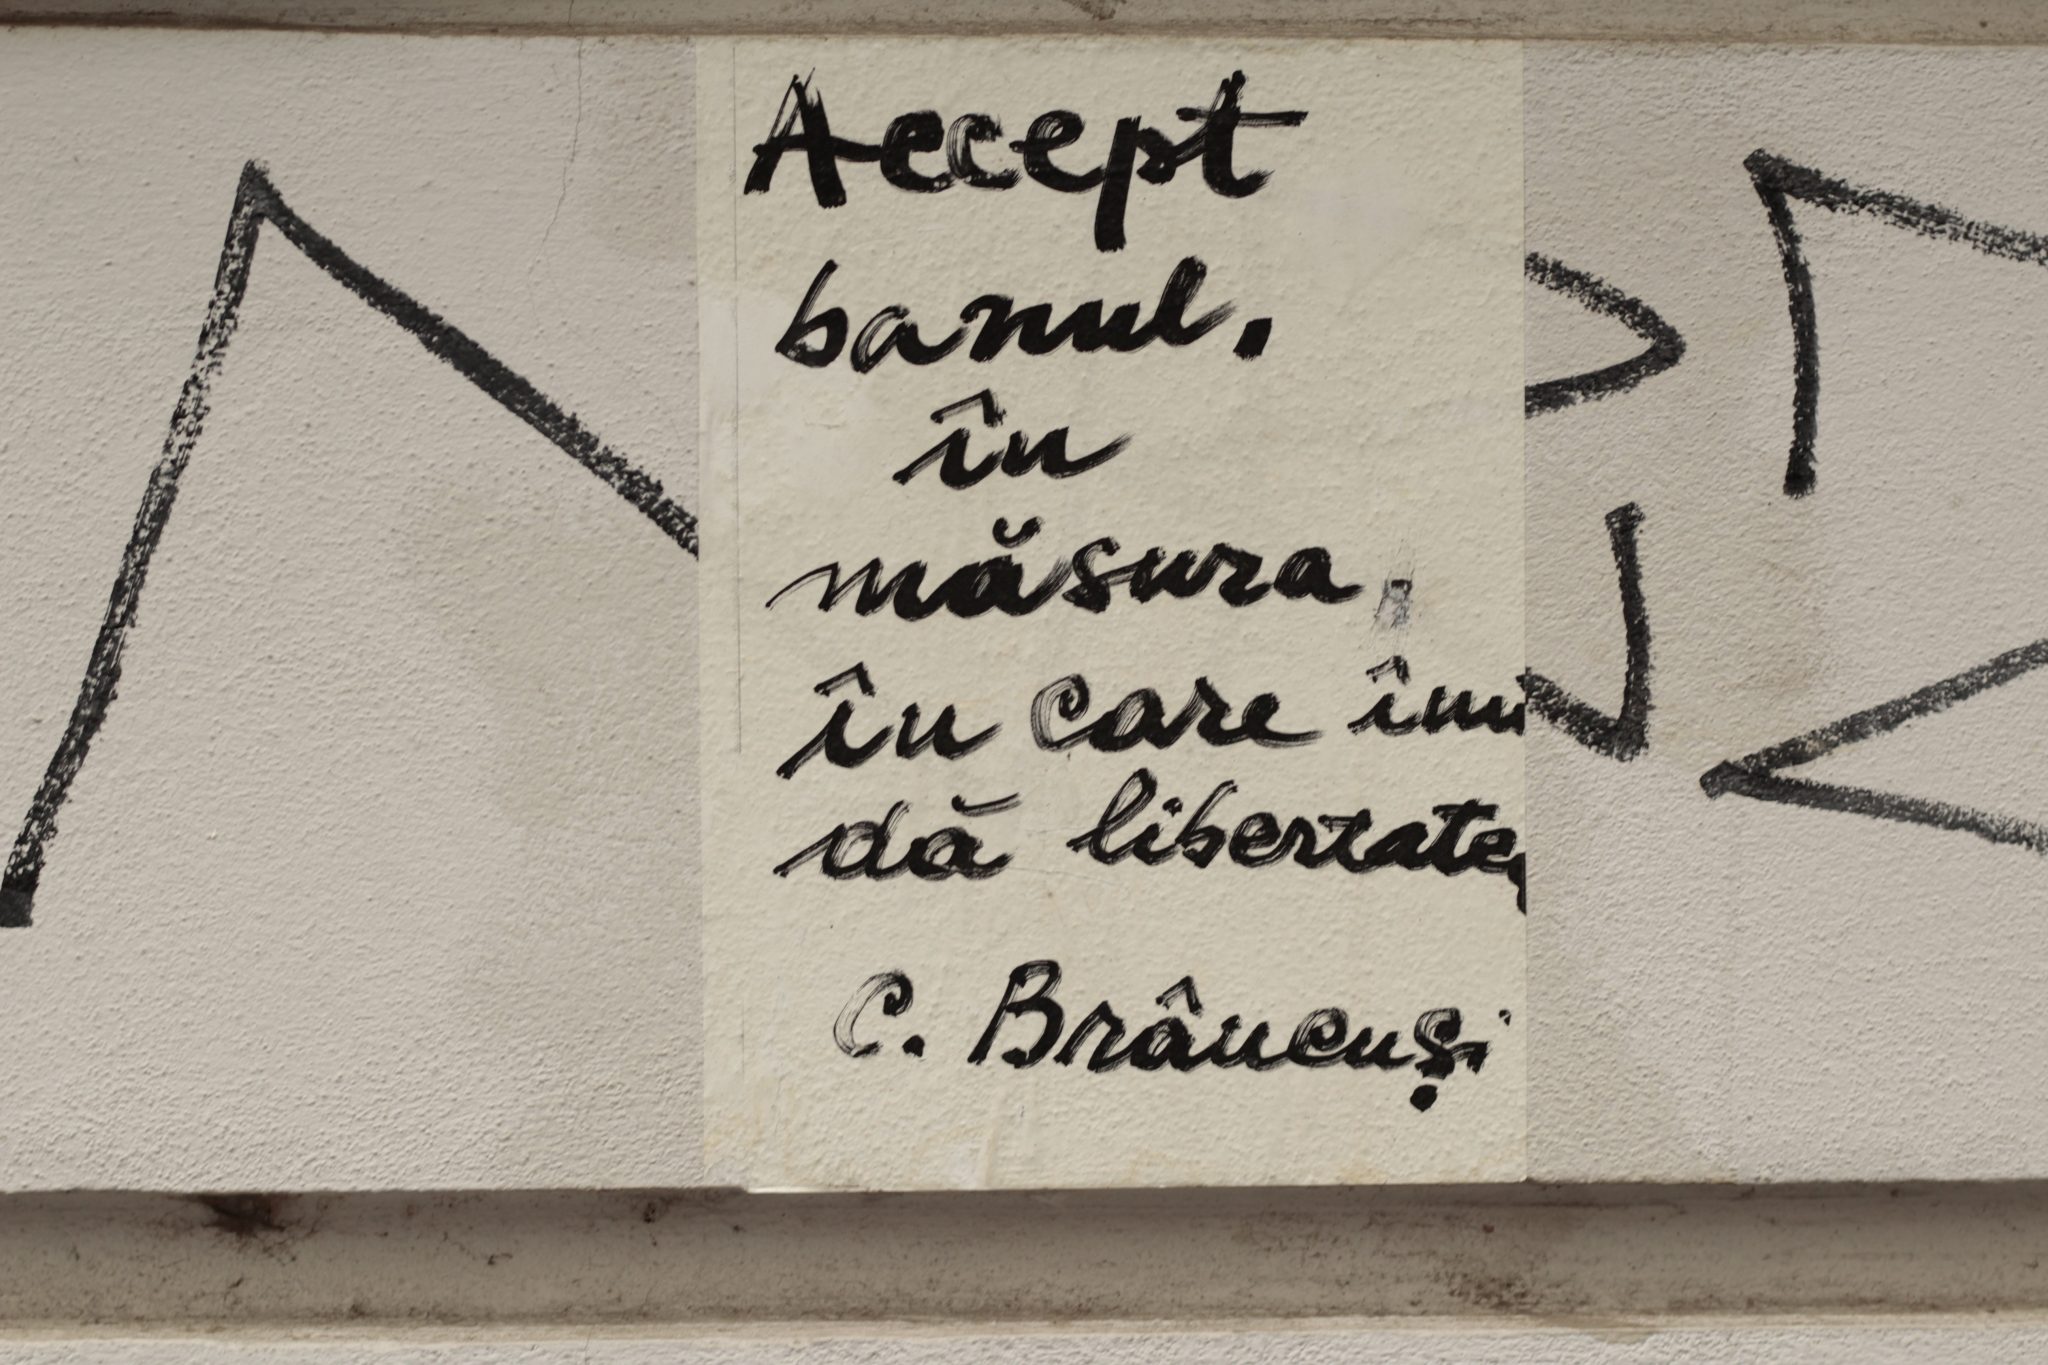 Accept
banul.
în
măsura
în care îmi
dă libertatea
C. Brâncuși